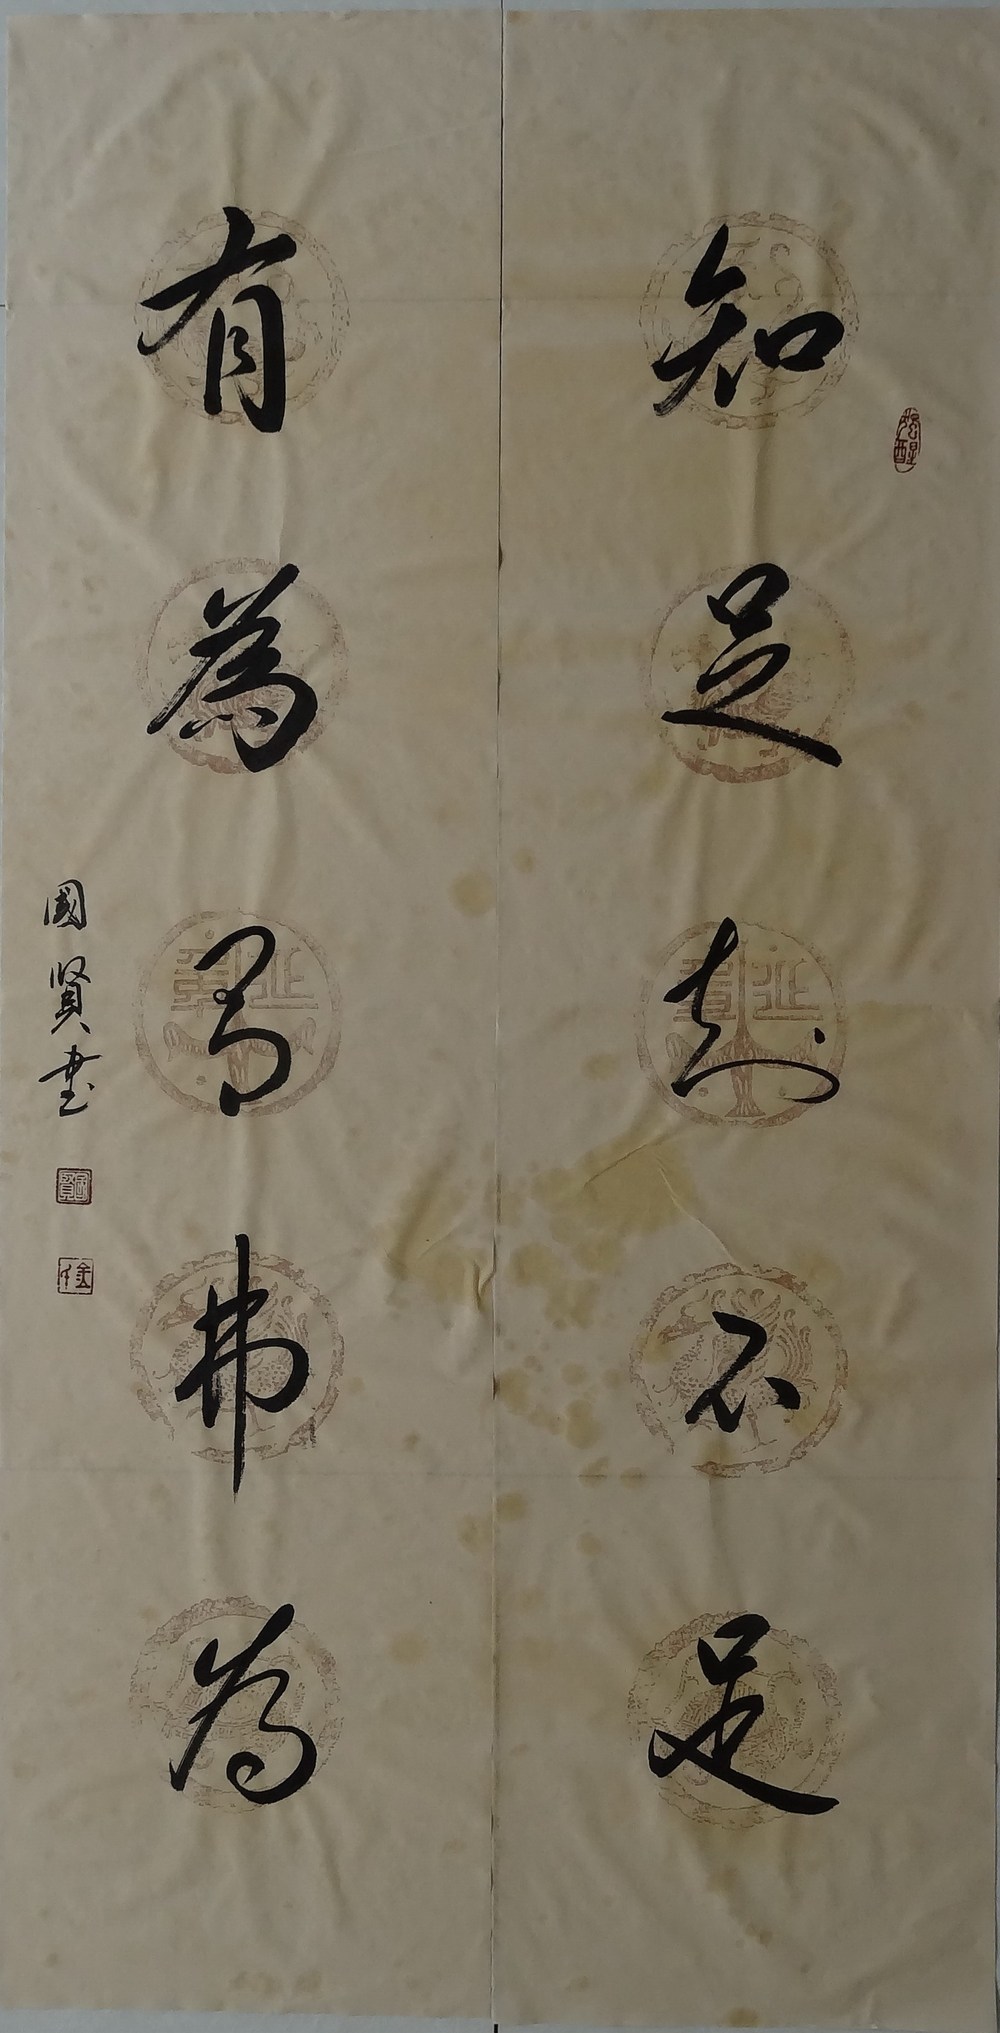 知足知不足
有為有弗為
國賢書
國賢